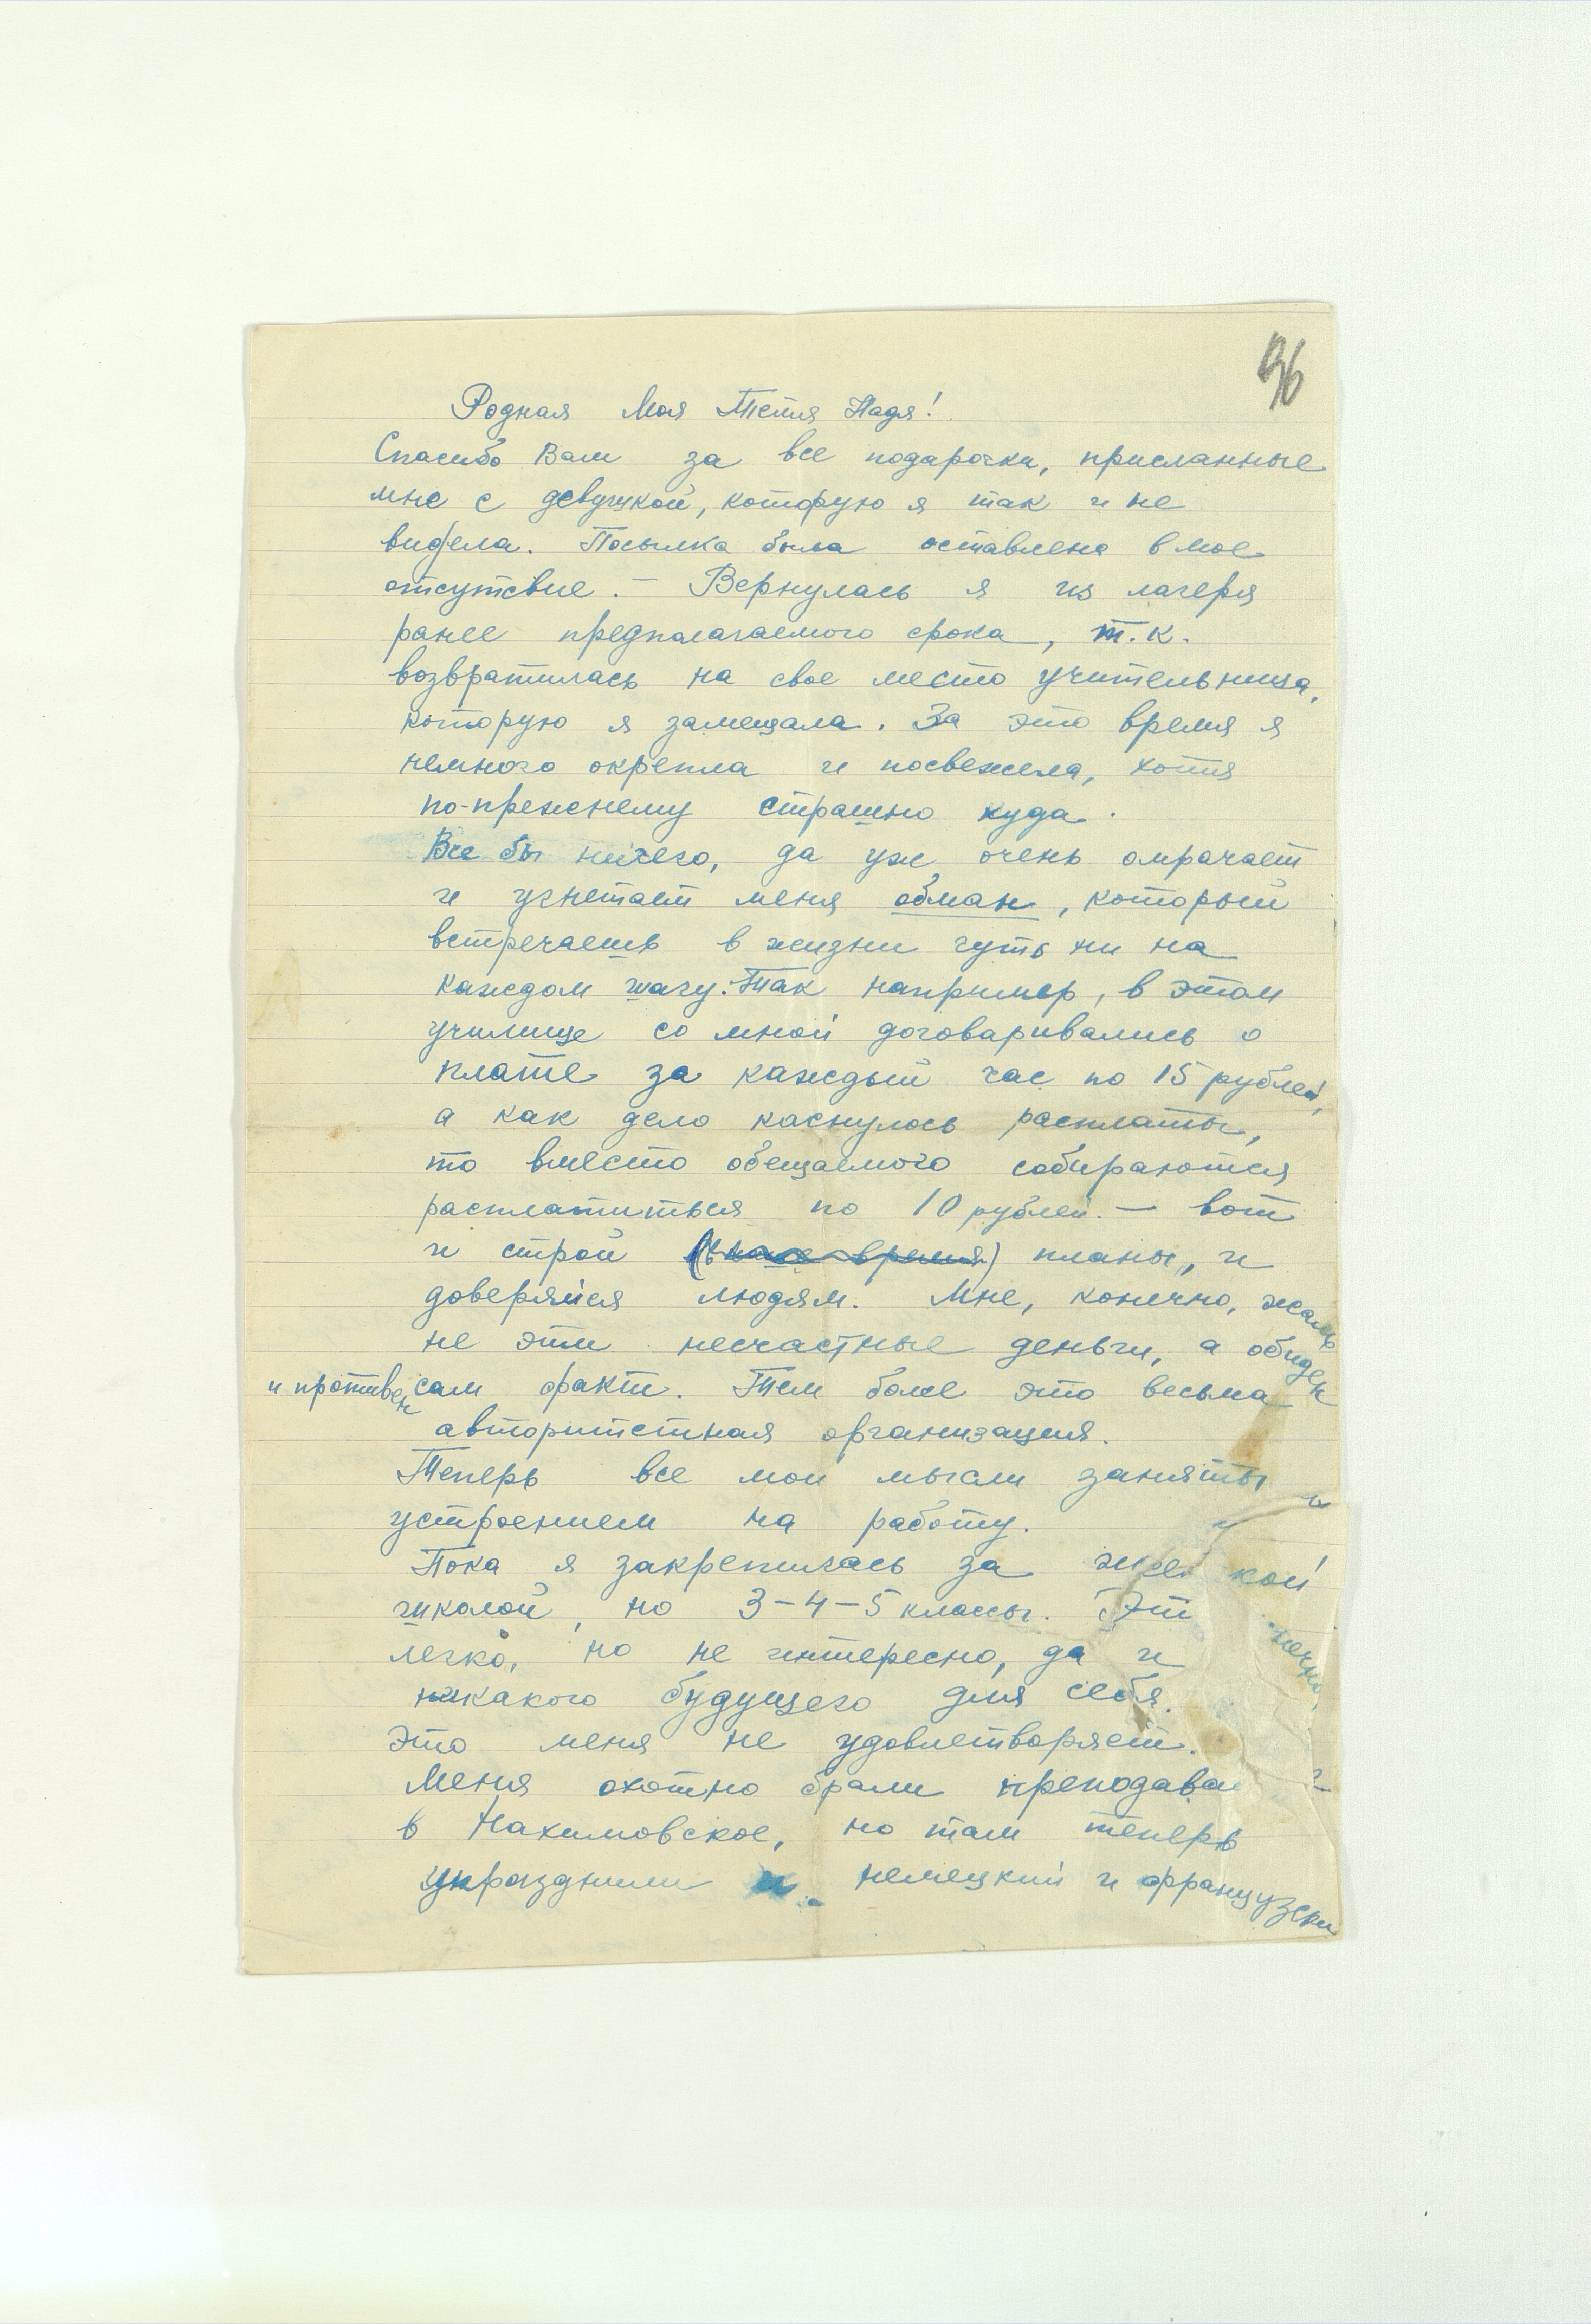 96
Родная Моя Тетя Надя!
Спасибо Вам за все подарочки, присланные
мне с девушкой, которую я так и не
видела. Посылка была оставлена в мое
отсутствие. – Вернулась я из лагеря
ранее предполагаемого срока, т.к.
возвратилась на свое место учительница,
которую я замещала. За это время я
немного окрепла и посвежела, хотя
по-прежнему страшно худа.
Все бы ничего, да уж очень омрачает
и угнетает меня обман, который
встречаешь в жизни чуть ни на
каждом шагу. Так например, в этом
училище со мной договаривались о
плате за каждый час по 15 рублей,
а как дело коснулось расплаты,
то вместо обещаемого собираются
расплатиться по 10 рублей. – вот
и строй (в наше время) планы, и
доверяйся людям. Мне, конечно, жаль
не эти несчастные деньги, а обиден
и противен сам факт. Тем боле это весьма
авторитетная организация.
Теперь все мои мысли заняты
устроением на работу.
Пока я закрепилась за кой
школой, но 3-4-5 классы. Эт
легко, но не интересно, да и
никакого будущего для себя.
Это меня не удовлетворяет.
Меня охотно брали преподава
в Нахимовское, но там теперь
упразднили и немецкий и французски